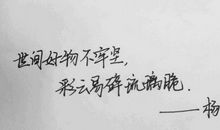 世间好物不牢坚，
彩云易碎琉璃脆．
——杨